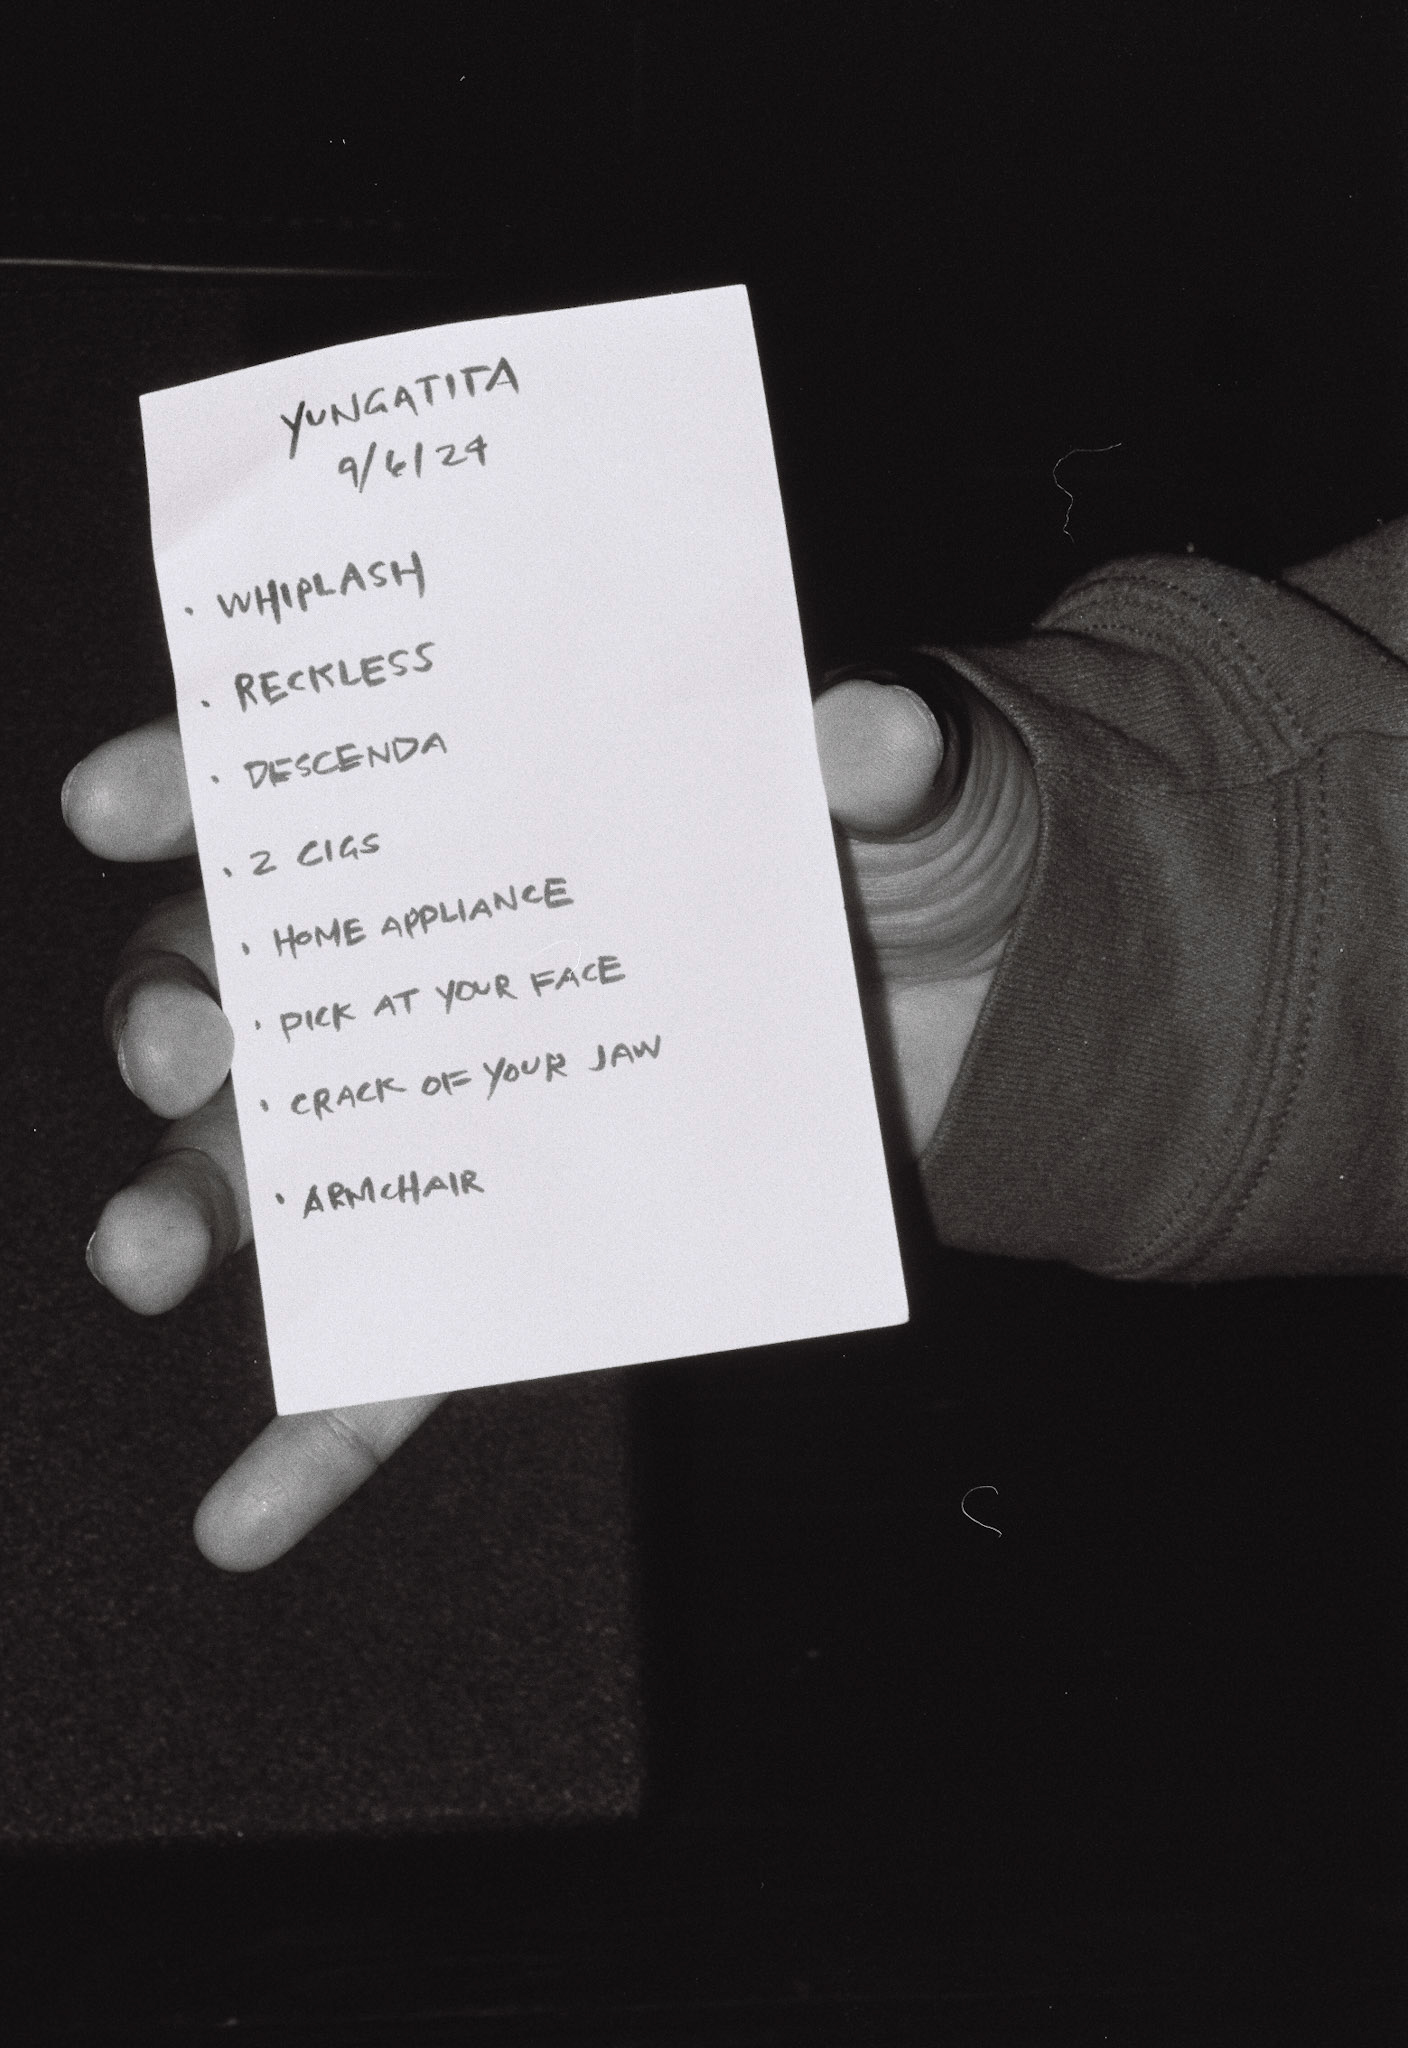 YUNGATITA
9/6/24
· WHIPLASH
· RECKLESS
· DESCENDA
· 2 CIGS
· HOME APPLIANCE
· PICK AT YOUR FACE
· CRACK OF YOUR JAW
· ARMCHAIR